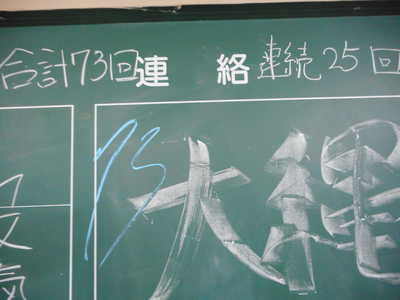 合計73回 連絡 連続25回
73 大縄
気